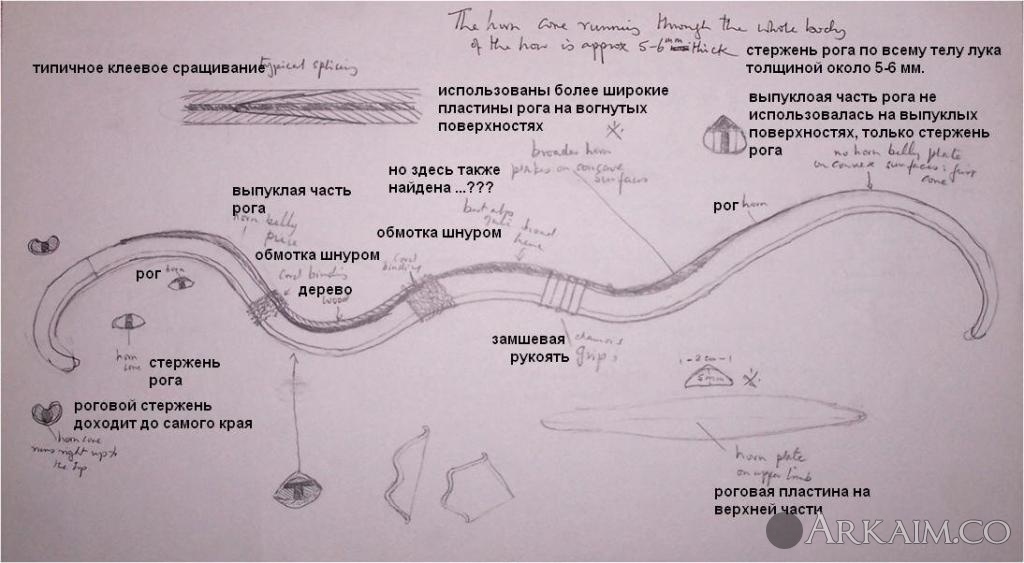 The horn core running through the whole body
of the bow is approx 5-6 mm thick
стержень рога по всему телу лука
толщиной около 5-6 мм.
типичное клеевое сращивание
typical splicing
использованы более широкие
пластины рога на вогнутых
поверхностях
broader horn
plates on concave
surfaces
выпуклоая часть рога не
использовалась на выпуклых
поверхностях, только стержень
рога
no horn belly plate
on convex surfaces: just
core
но здесь также
найдена ...???
but also
found
here
выпуклая часть
рога
horn belly
piece
рог
horn
обмотка шнуром
cord
binding
обмотка шнуром
cord binding
дерево
wood
рог
horn
замшевая
рукоять
chamois
grip
стержень
рога
horn
core
1-2cm-1
5mm
роговой стержень
доходит до самого края
horn core
runs right up to
the tip
horn plate
on upper limb
роговая пластина на
верхней части
ARKAIM.CO